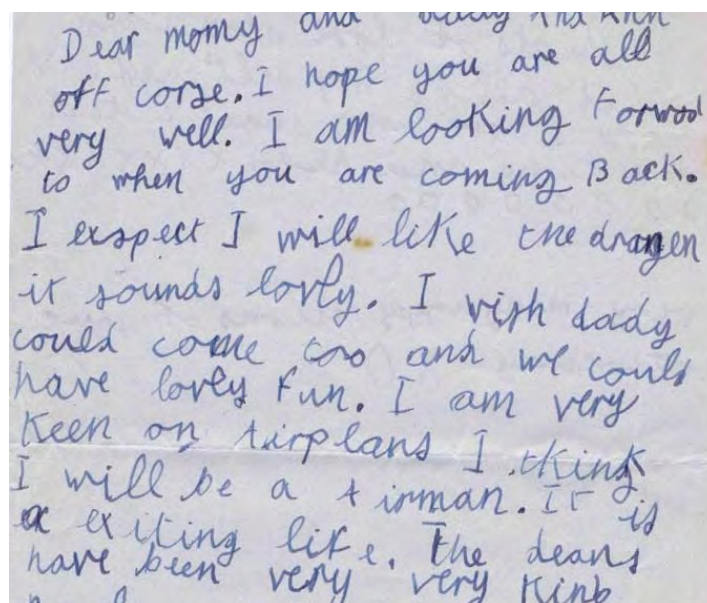 Dear momy and dady And Ann
off corse. I hope you are all
very well. I am looking Forwod
to when you are coming Back.
I exspect I will like the drangen
it sounds lovly. I wish dady
could come too and we could
have lovly fun. I am very
Keen on Airplans I think
I will be a Airman. It is
a exiting life. The deans
have been very very Kinb